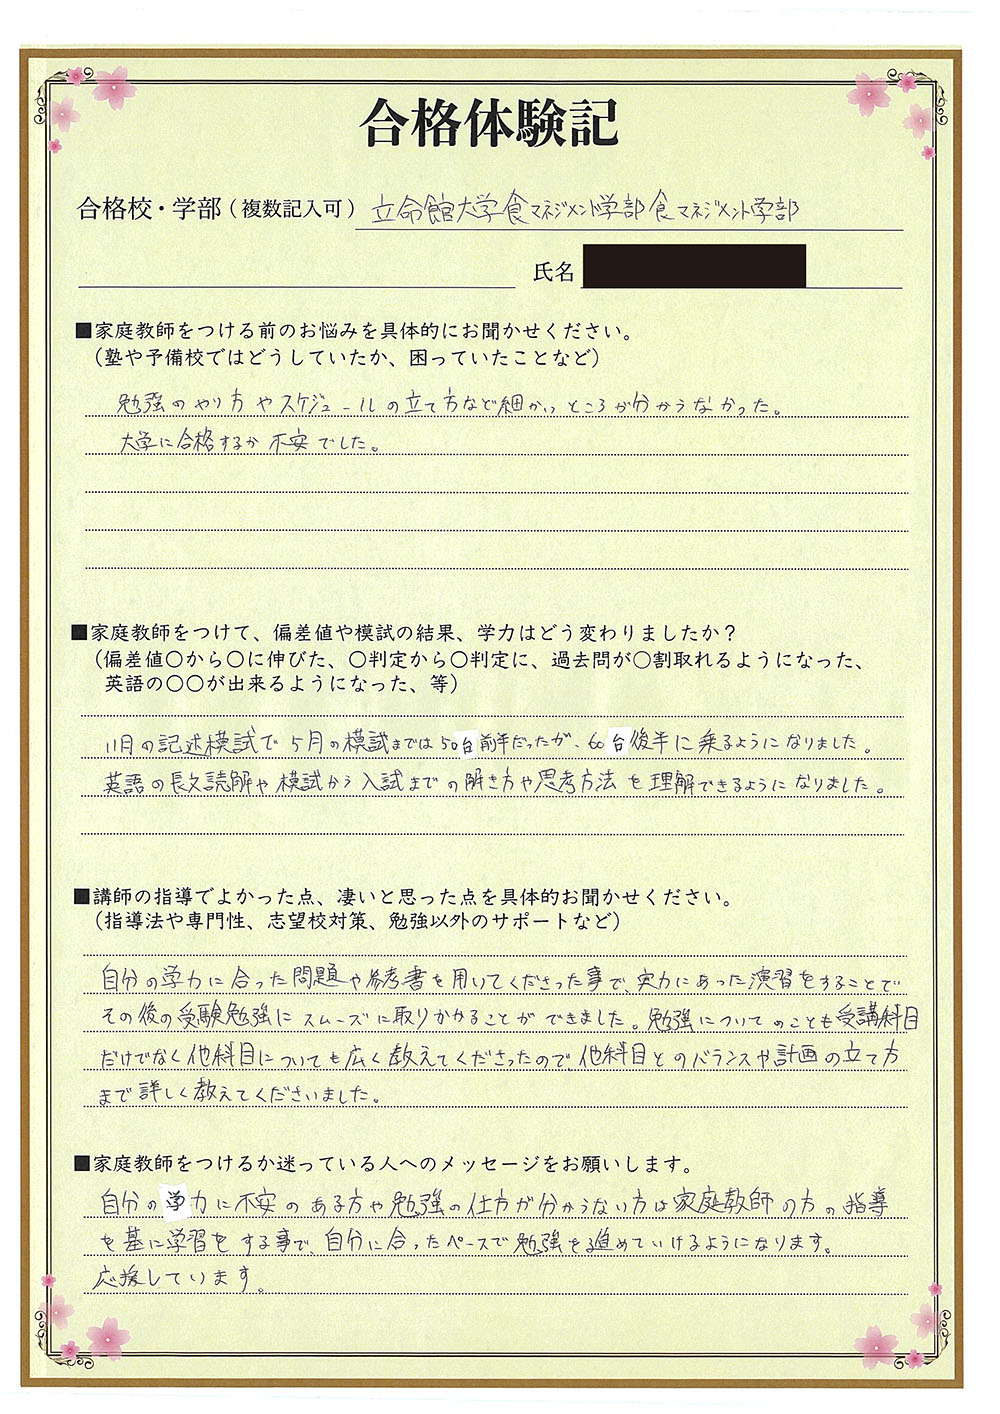 合格体験記
合格校・学部（複数記入可） 立命館大学食マネジメント学部食マネジメント学部
氏名
■家庭教師をつける前のお悩みを具体的にお聞かせください。
（塾や予備校ではどうしていたか、困っていたことなど）
勉強のやり方やスケジュールの立て方など細かいところが分からなかった。
大学に合格するか不安でした。
■家庭教師をつけて、偏差値や模試の結果、学力はどう変わりましたか？
（偏差値〇から〇に伸びた、〇判定から〇判定に、過去問が〇割取れるようになった、
英語の〇〇が出来るようになった、等）
11月の記述模試で5月の模試までは50台前半だったが、60台後半に乗るようになりました。
英語の長文読解や模試から入試までの解き方や思考方法を理解できるようになりました。
■講師の指導でよかった点、凄いと思った点を具体的お聞かせください。
（指導法や専門性、志望校対策、勉強以外のサポートなど）
自分の学力に合った問題や参考書を用いてくださった事で、実力にあった演習をすることで
その後の受験勉強にスムーズに取りかかることができました。勉強についてのことも受講科目
だけでなく他科目についても広く教えてくださったので、他科目とのバランスや計画の立て方
まで詳しく教えてくださいました。
■家庭教師をつけるか迷っている人へのメッセージをお願いします。
自分の学力に不安のある方や勉強の仕方が分からない方は家庭教師の方の指導
を基に学習をする事で、自分に合ったペースで勉強を進めていけるようになります。
応援しています。